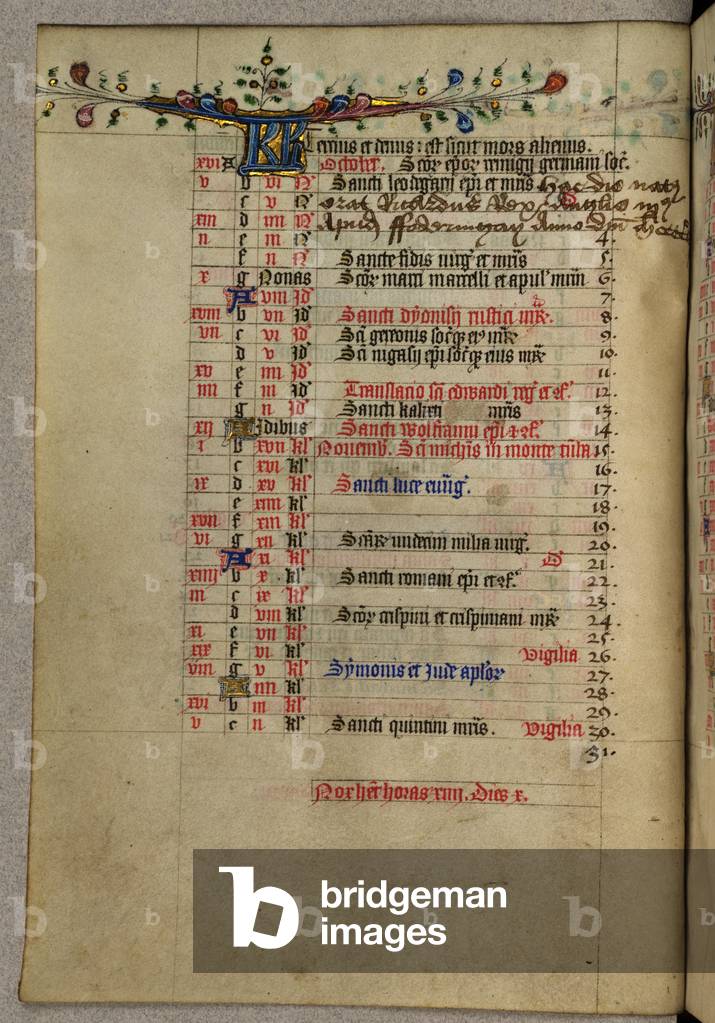 KL Tercius et denus: est sicut mors alienus.
xvi A October. Scōr epōr remigij germani soc̄.
v b vi N Sancti leodegarij epī et mr̄is hac die nat9
c v N erat Ricardus Rex Anglie
xiii d iiii N Apud ffodermgay Anno dnī
ii e iii N 4.
f ii N Sancte fidis uirḡ et mr̄is 5.
x g Nonas Scōr marci marcelli et apul' mr̄m 6.
A viii Id 7.
xviii b vii Id Sancti dyonisij rustici mr̄. 8.
vii c vi Id Sc̄i gereonis soc̄q; ei9 mr̄ 9.
d v Id Sc̄i nigasij epī soc̄q; eius mr̄ 10.
xv e iiii Id 11.
iiii f iii Id Translacio sc̄i edwardi reḡ et cf. 12.
g ii Id Sancti kalixti mr̄is 13.
xii A Idibus Sancti wolfranni epī et cf. 14.
i b xvii kl' Nouemb. Sc̄i mich̄is in monte tūba 15.
c xvi kl' 16.
ix d xv kl' Sancti luce euāg. 17.
e xiiii kl' 18.
xvii f xiii kl' 19.
vi g xii kl' Scār undecim milia uirg. 20.
A xi kl' 21.
xiiii b x kl' Sancti romani epī et cf. 22.
iii c ix kl' 23.
d viii kl' Scōr crispini et crispiniani mr̄ 24.
xi e vii kl' 25.
xix f vi kl' Vigilia 26.
viii g v kl' Symonis et Jude aplōr 27.
A iiii kl' 28.
xvi b iii kl' 29.
v c ii kl' Sancti quintini mr̄is. Vigilia 30.
31.
Nox het horas xiiii. Dies x.
b bridgeman images